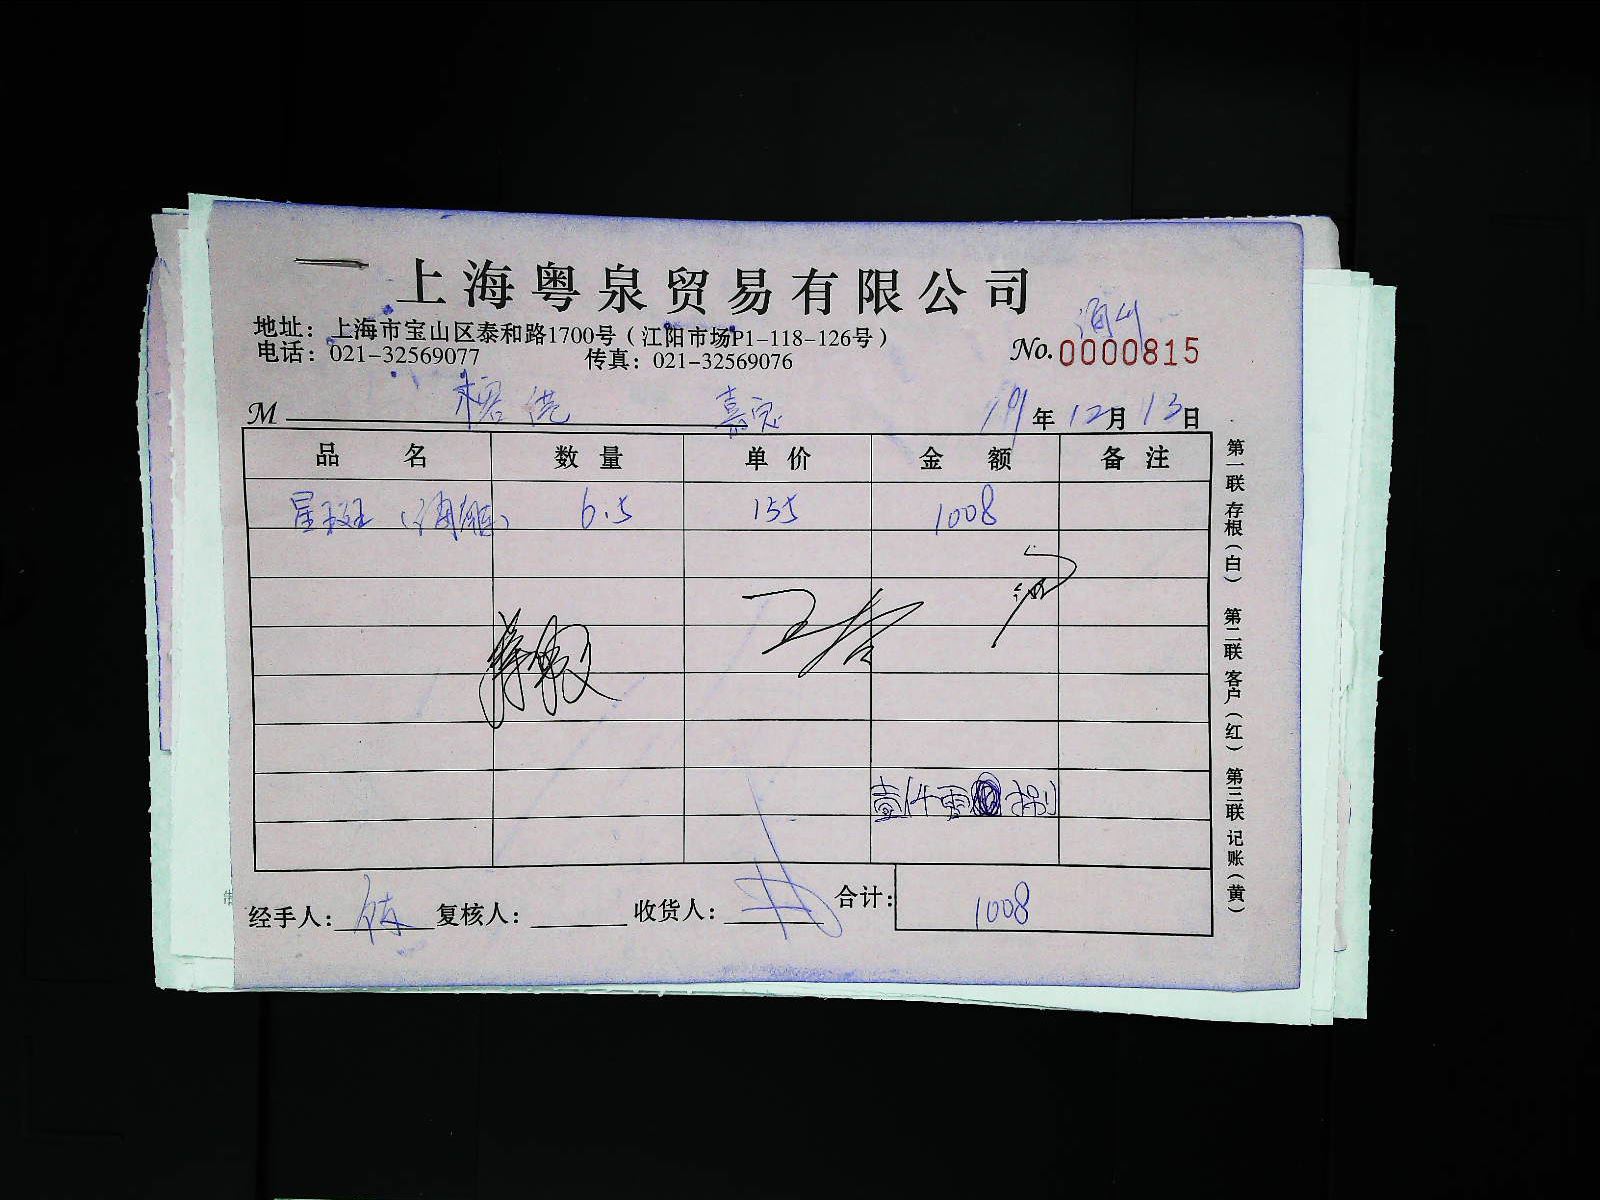 上海粤泉贸易有限公司
地址：上海市宝山区泰和路1700号（江阳市场P1-118-126号）
电话：021-32569077 传真：021-32569076
No.0000815
M 榕港 嘉定 19年12月13日
品名 数量 单价 金额 备注
星斑 6.5 155 1008
壹仟零 捌
经手人： 复核人： 收货人： 合计：1008
第一联 存根（白） 第二联 客户（红） 第三联 记账（黄）